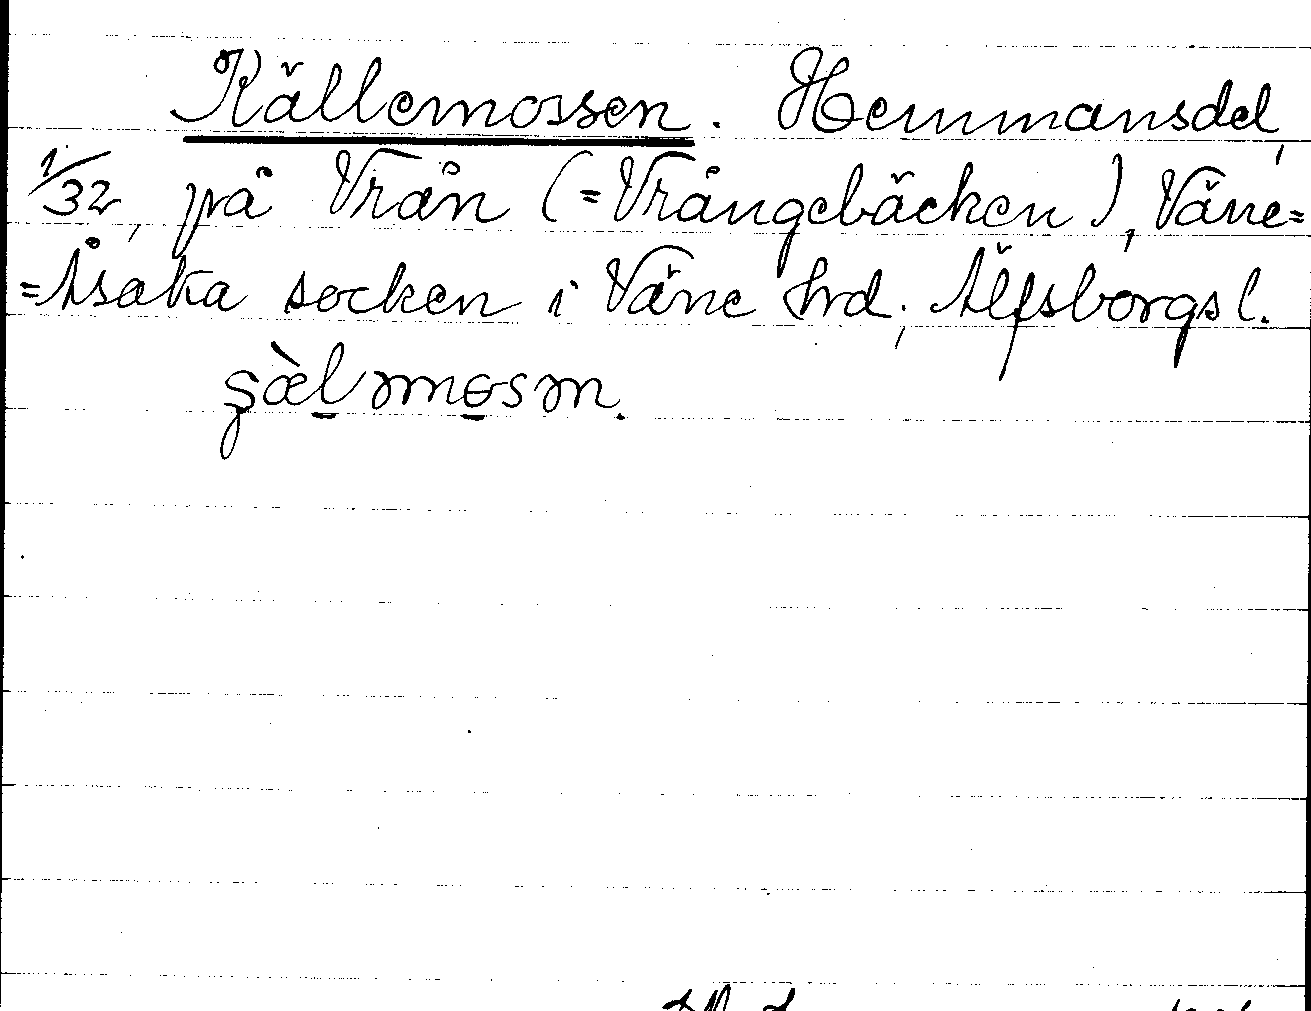 Källemossen. Hemmansdel,
1/32, på Vrån (=Vrångebäcken), Väne=
=Åsaka socken i Väne hrd; Älfsborgs l.